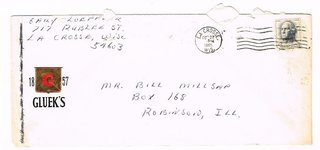 GARY
RUBLEE ST.
LA CROSSE, WISC
54603
LA CROSSE
WIS.
18 57
GLUEK'S
MR. BILL MILLSAP
BOX 168
ROBINSON, ILL.